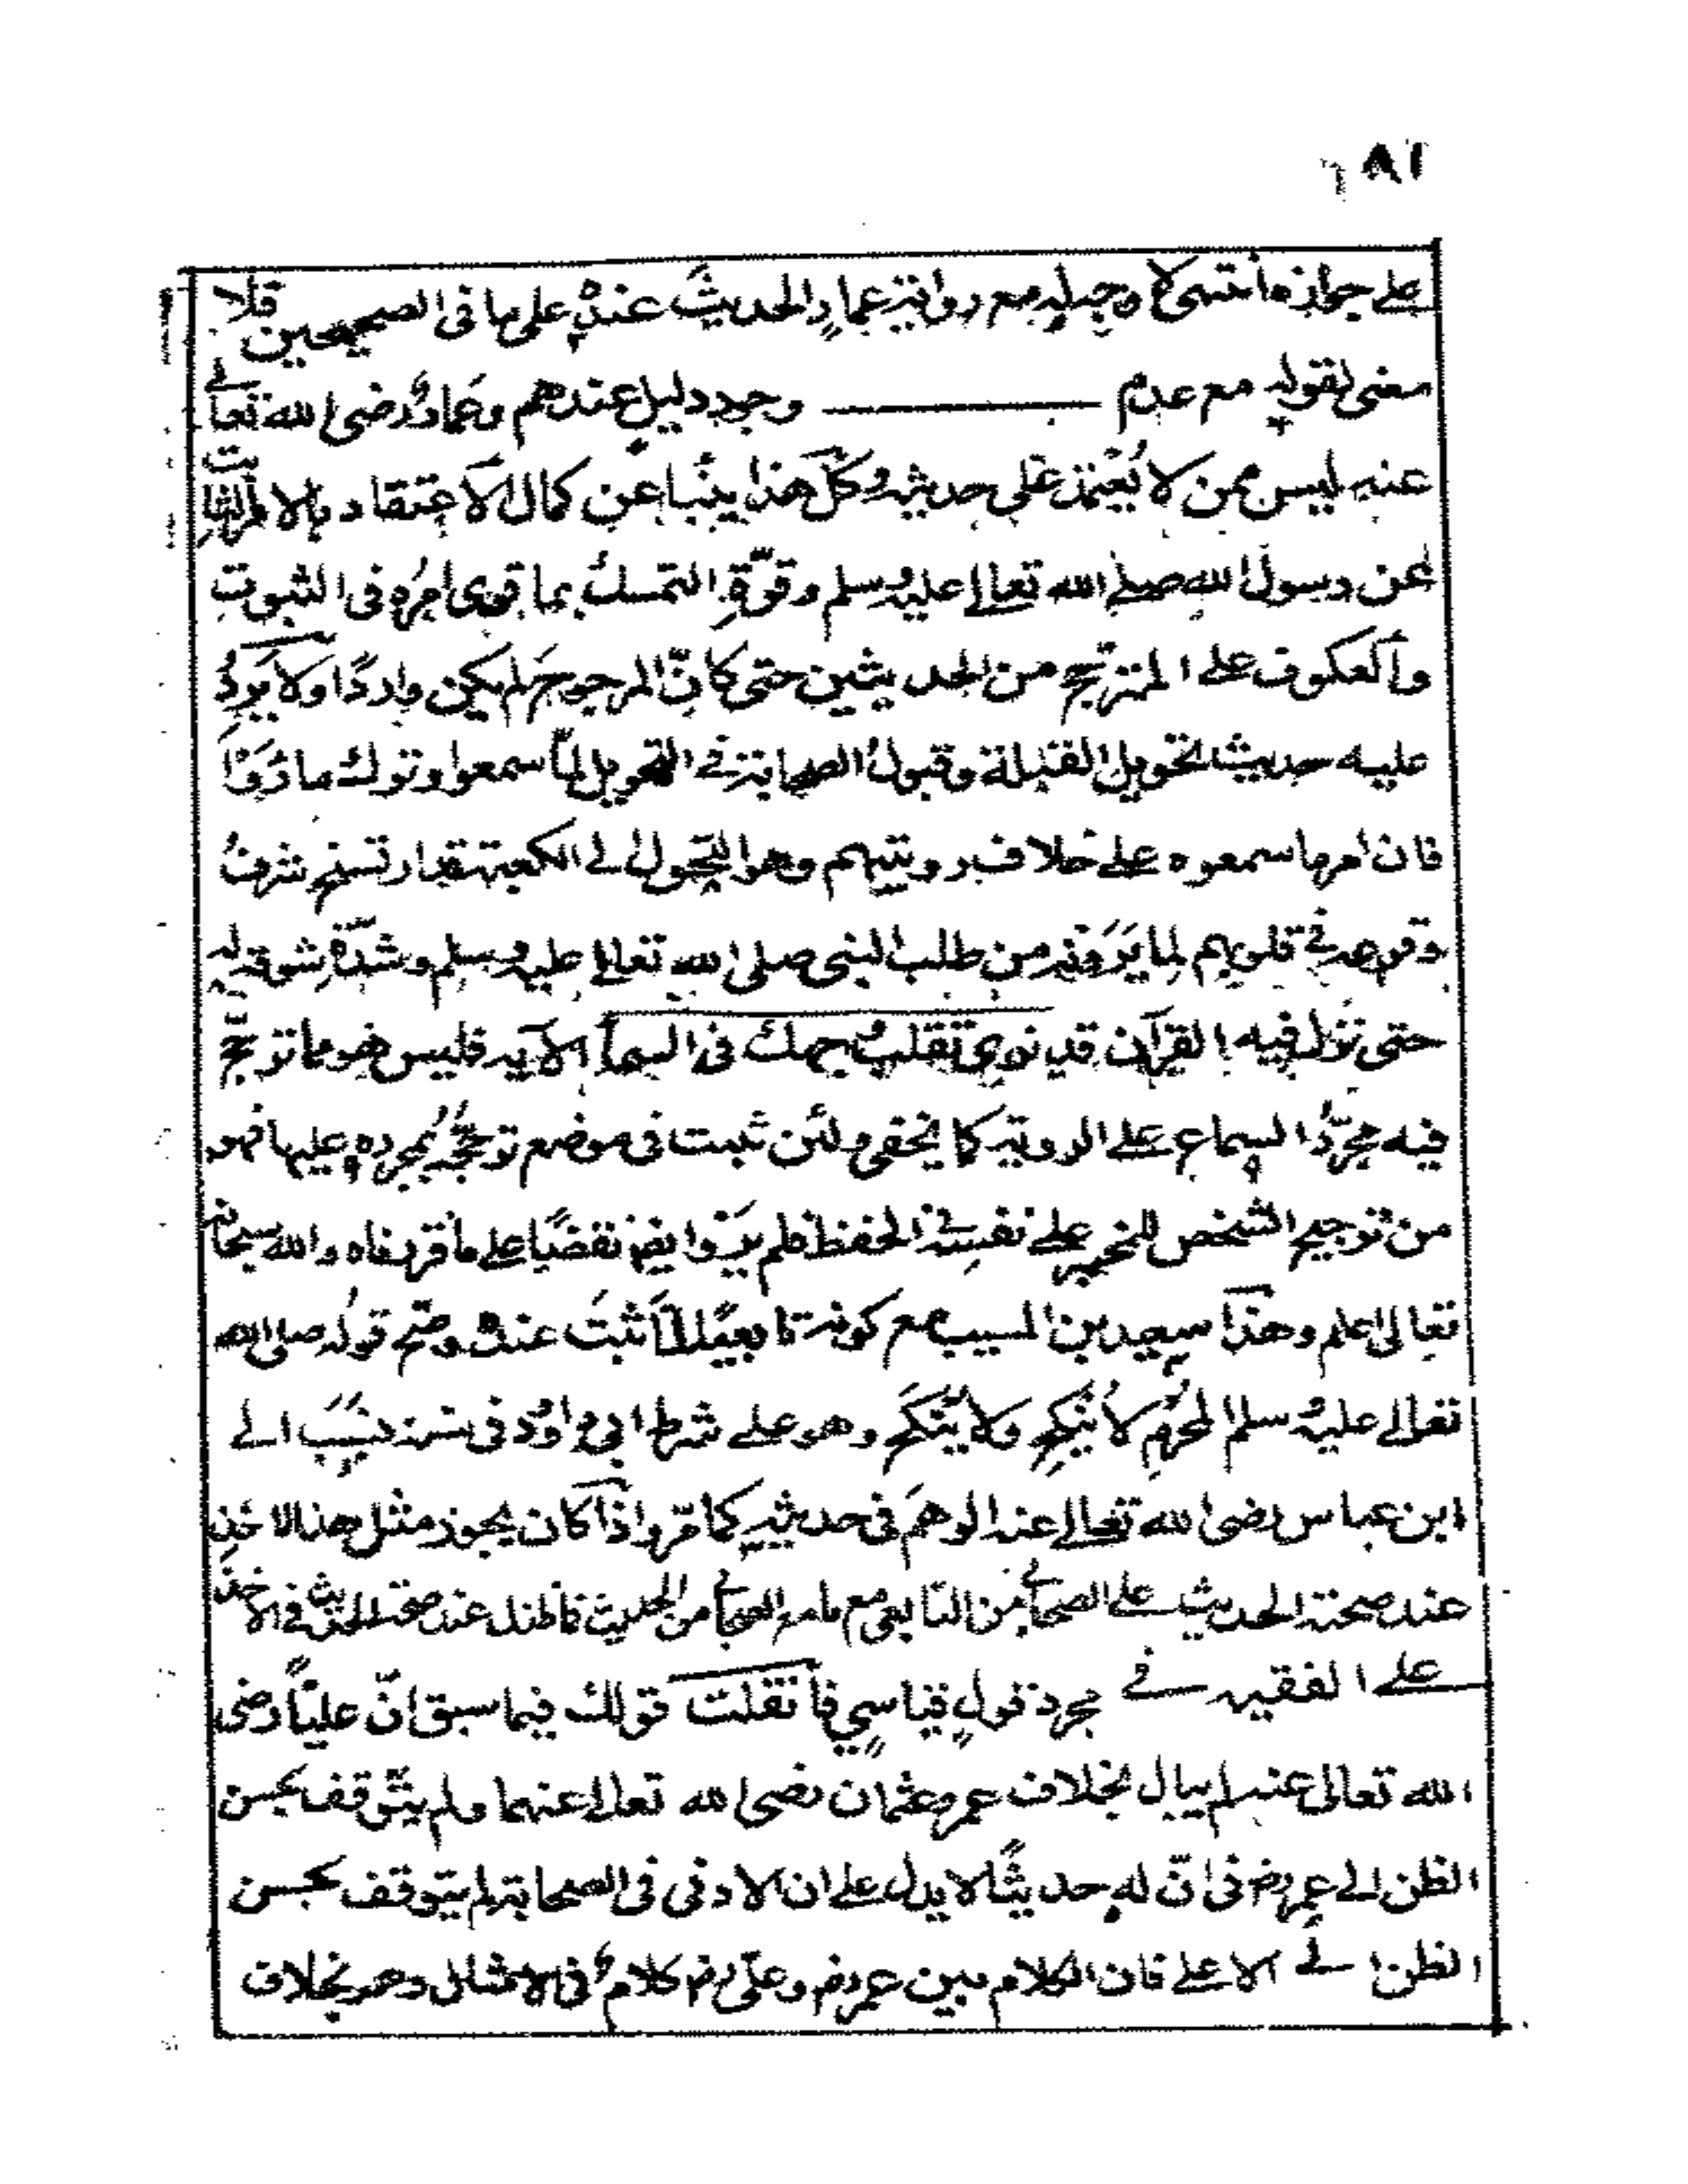 ٨١
على جوازه ما انتهى لا وجه له مع رواية عمارٍ الحديثَ عنده على ما فى الصحيحين فلا
معنى لقوله مع عدم وجود دليلٍ عندهم وعمارٌ رضى الله تعالى
عنه ليس ممن لا يُعتمد على حديثه وكلّ هذا ينبأ عن كمال الاعتقاد بالامر الثابت
عن رسول الله صلى الله تعالى عليه وسلم وقوّةِ التمسك بما قوى امرُه فى الثبوت
والعكوف على المترجّح من الحديثين حتى كانّ المرجوح لم يكن واردًا ولا يَرِدُ
عليه حديث تحويل القبلة وقبولُ الصحابة فى التحويل لِما سمعوا وترك ما رَوَوْا
فان امر ما سمعوه على خلاف رويتهم وهو التحول الى الكعبة قدار تسخ شرفُ
وقوعه فى قلوبهم لِما يَرَونه من طلب النبى صلى الله تعالى عليه وسلم وشدّةِ شوقه له
حتى نزل فيه القرآن قد نرى تقلّب وجهك فى السماء الآيه فليس هو مما ترجّح
فيه مجرّدُ السماع على الروية كما يخفى ولئن ثبت فى موضع ترجّحُ مجرده عليها فهو
من ترجيح الشخص للمخبر على نفسه فى الحفظ فلم يرَوْا فيه نقضًا على ما قررناه والله سبحانه
تعالى اعلم وهذا سعيد بن المسيب مع كونه تابعيًا لمّا ثبتَ عنده وصحّ قولُه صلى الله
تعالى عليه وسلم المحرم لا يَنكِح ولا يُنكَح وهو على شرط ابى داوُد فى سننه نسَبَ الى
ابن عباس رضى الله تعالى عنه الوهمَ فى حديثه كما مرّ واذا كان يجوز مثل هذا الاخذ
عند صحة الحديث على الصحابى من التابعى مع ما سمع الصحابى من الحديث فما ظنك عند صحة الحديث فى الاخذ
على الفقيه فى مجرد قولٍ قياسيٍ فان قلت قولك فيما سبق انّ عليًّا رضى
الله تعالى عنه لم يبال بخلاف عمر وعثمان رضى الله تعالى عنهما ولم يتوقف بحسن
الظن الى عمر رضہ فى انّ له حديثًا لا يدل على ان الادنى فى الصحابة لم يتوقف بحسن
الظن الى الاعلى فان الكلام بين عمر رضہ وعلى رضہ كلامٌ فى الامثال وهو بخلاف